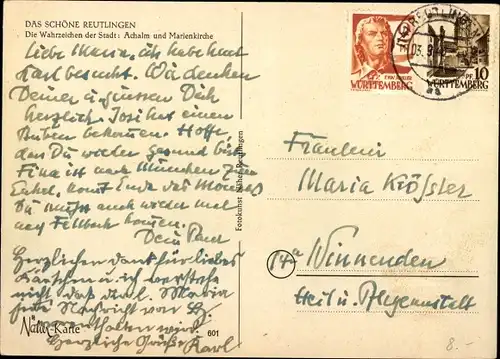 DAS SCHÖNE REUTLINGEN
Die Wahrzeichen der Stadt: Achalm und Marienkirche
Liebe Maria, ich habe heut
Karl besucht. Wir denken
Deiner u. grüssen Dich
herzlich. Josi hat einen
Buben bekommen. Hoffe,
daß Du wieder gesund bist.
Fina ist nach München zum
Enkel, kommt Ende des Monats
Du mußt auch wieder mal
nach Fellbach kommen.
Dein Paul
Herzlichen Dank für liebes
Kärtchen u. ich verstehe
nicht daß Maria
Nachricht von
wird
Herzliche Grüße Karl
Natur-Karte
601
Fotokunst Reutlingen
WÜRTTEMBERG
PF. 10
WÜRTTEMBERG
03. 9.
Fräulein
Maria Klößler
14a Winnenden
Heil u. Pflegeanstalt
8.-